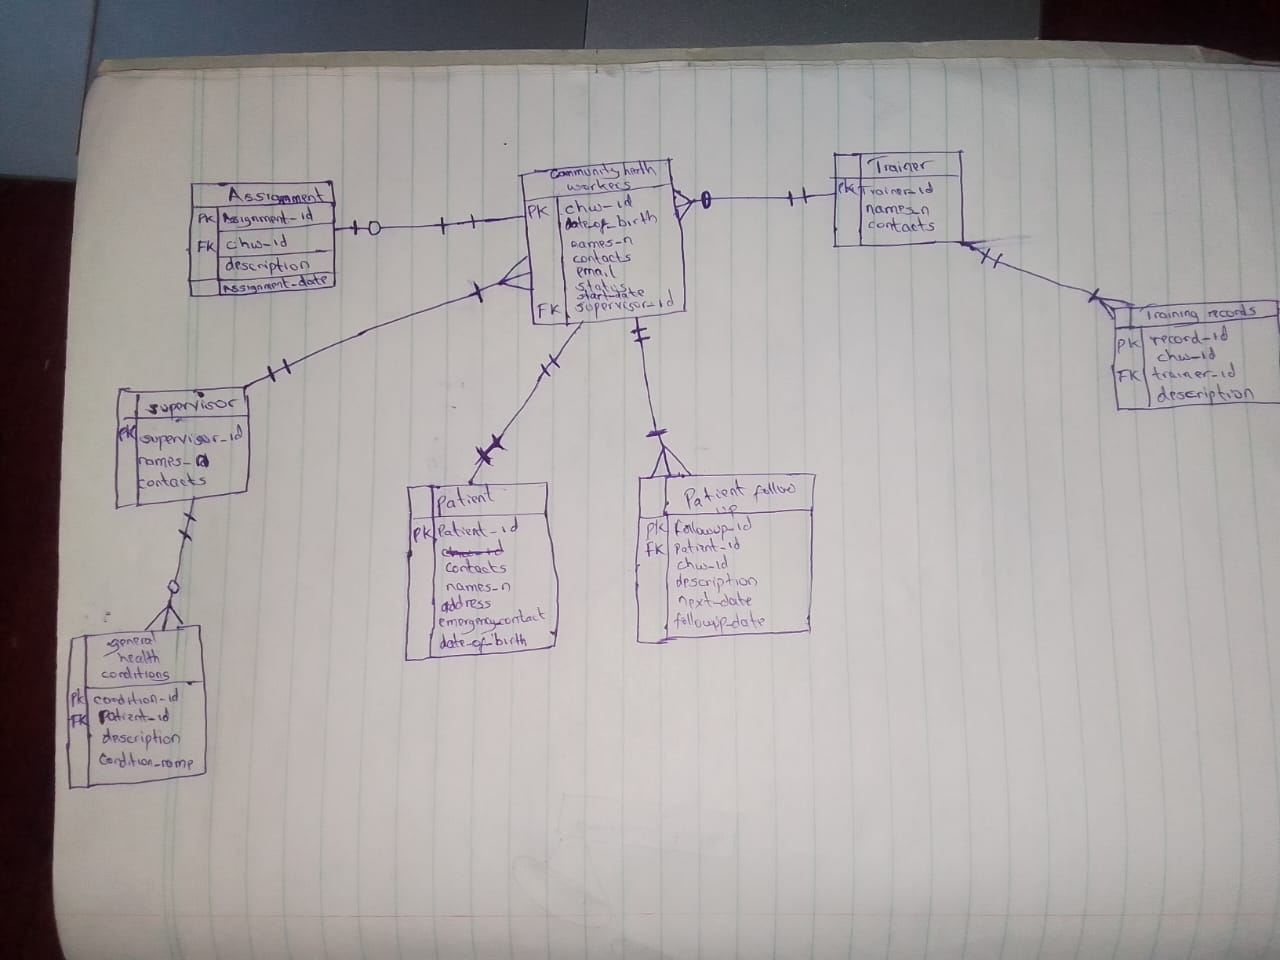 Assignment
PK Assignment-id
FK chw-id
description
Assignment-date
Community health
workers
PK chw-id
date-of-birth
names-n
contacts
email
status
start-date
FK supervisor-id
Trainer
PK Trainer-id
names-n
contacts
Training records
PK record-id
chw-id
FK trainer-id
description
supervisor
PK supervisor-id
names-
contacts
Patient
PK Patient-id
chw-id
contacts
names-n
address
emergency-contact
date-of-birth
Patient follow
up
PK followup-id
FK Patient-id
chw-id
description
next-date
followup-date
general
health
conditions
PK condition-id
FK Patient-id
description
Condition-name